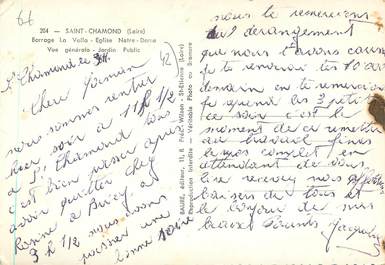 64
204 - SAINT-CHAMOND (Loire)
Barrage La Valla - Eglise Notre-Dame
Vue générale - Jardin Public
St Chamond le
Chere
nous sommes rentrer
hier soir a 11 h 1/2
a St Chamond tous
c'est bien passer apres
avoir quitter chez
a
3 h 1/2 nous avons
passer une
bonne soiré
BAURE, éditeur, 13, R. Prés.-Wilson - St-Etienne (Loire)
Reproduction Interdite - Véritable Photo au Bromure
nous le remercions
du dérangement
que nous t'avons causé
je te renvoies les 10 000
demain en te remerciant
je reprend les 3 petits
ce soir c'est le
moment de ce remettre
au travail finis
le repos complet en
attendant de vous
lire recevez nos
baisers de tous et
le bonjour de mes
beaux Parents Jacqueline